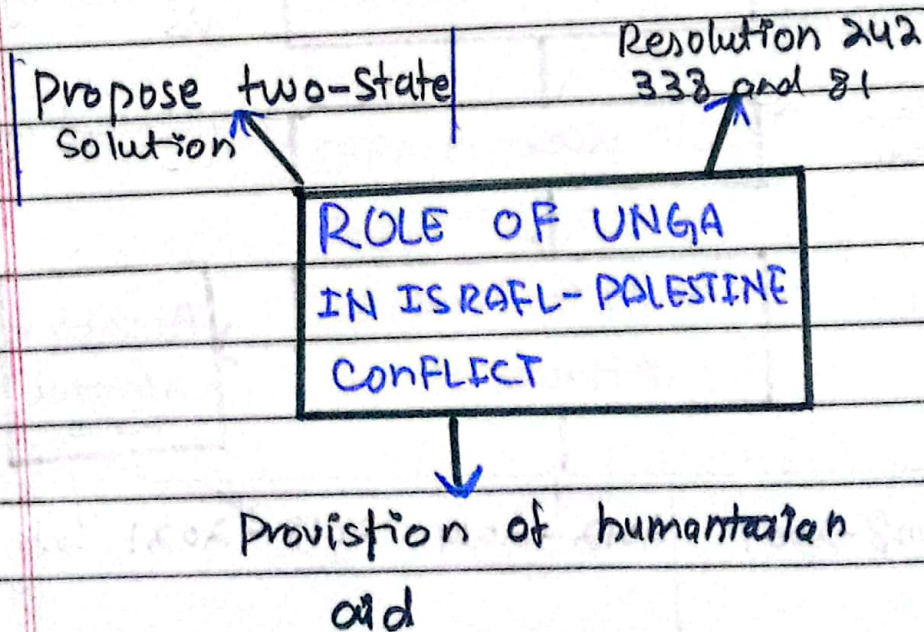 Propose two-state
Solution
Resolution 242
338 and 81
ROLE OF UNGA
IN ISRAFL-PALESTINE
CONFLICT
Provistion of humantaian
aid